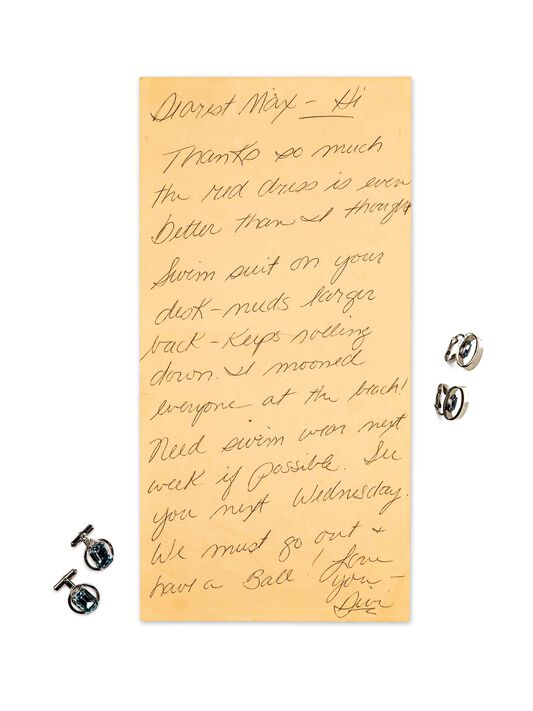 Dearest Max - Hi
Thanks so much
the red dress is even
better than I thought
Swim suit on your
desk - needs larger
back - Keeps rolling
down. I mooned
everyone at the beach!
Need swim wear next
week if possible. See
you next Wednesday.
We must go out +
have a Ball! Love
you -